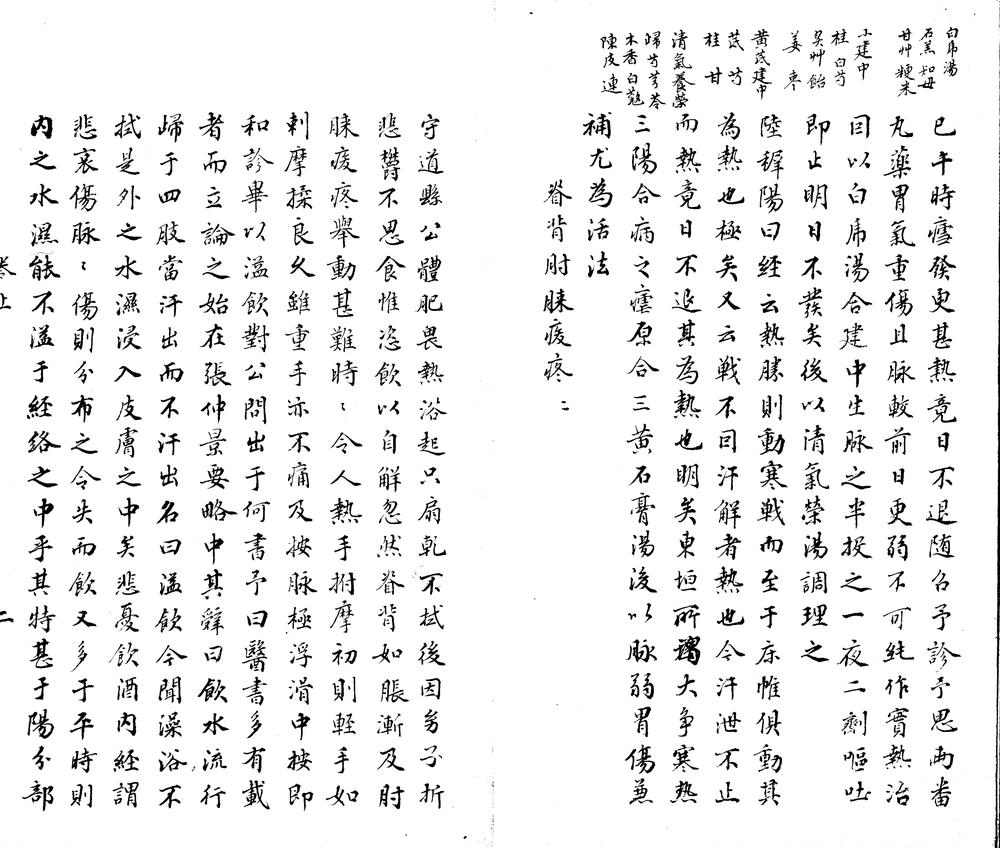 白虎湯
石羔 知母
甘艸 粳米
小建中
桂 白芍
炙艸 飴
姜 枣
黄芪建中
芪 芍
桂 甘
清氣養榮
歸 芍 芎 苓
木香 白蔻
陳皮 連
巳午時瘧發更甚熱竟日不退随名予診予思两番
丸藥胃氣重傷且脉較前日更弱不可純作實熱治
因以白虎湯合建中生脉之半投之一夜二劑嘔吐
即止明日不發矣後以清氣榮湯調理之
陸穉陽曰経云熱勝則動寒戦而至于床惟俱動其
為熱也極矣又云戦不囙汗解者熱也今汗泄不止
而熱竟日不退其為熱也明矣東垣所謂大争寒熱
三陽合病之瘧原合三黄石膏湯後以脉弱胃傷兼
補尤為活法
脊背肘腂痠疼
守道縣公體肥畏熱浴起只扇乹不拭後因旁子折
悲欝不思食惟恣飲以自解忽然脊背如脹漸及肘
腂痠疼舉動甚難時〻令人熱手拊摩初則軽手如
刺摩揉良久雖重手亦不痛及按脉極浮滑中按即
和診畢以溢飲對公問出于何書予曰醫書多有載
者而立論之始在張仲景要略中其辭曰飲水流行
歸于四肢當汗出而不汗出名曰溢飲今聞澡浴不
拭是外之水濕浸入皮膚之中矣悲憂飲酒内経謂
悲哀傷脉〻傷則分布之令失而飲又多于平時則
内之水濕能不溢于経絡之中乎其特甚于陽分部
卷上
二